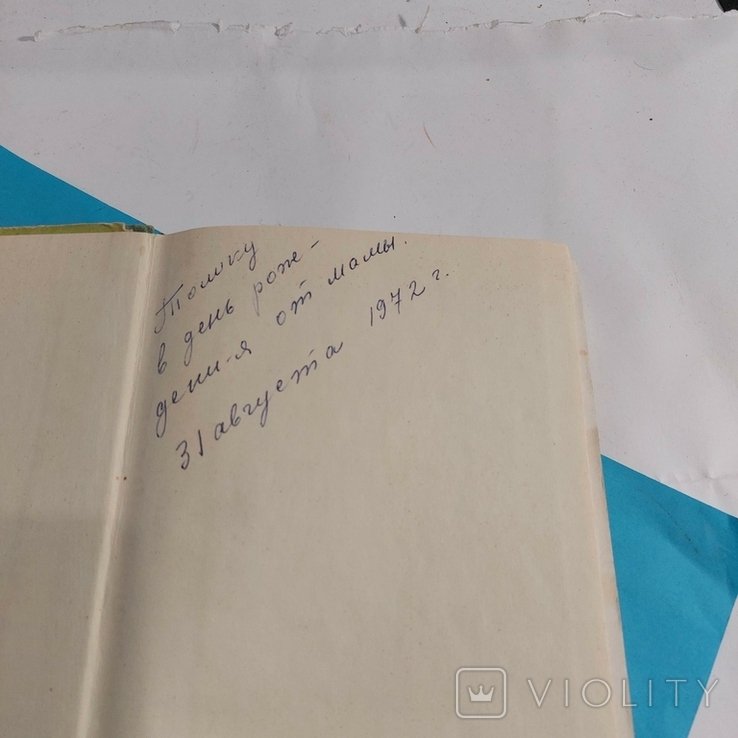 Толику
в день рож-
дения от мамы.
31 августа 1972 г.
VIOLITY